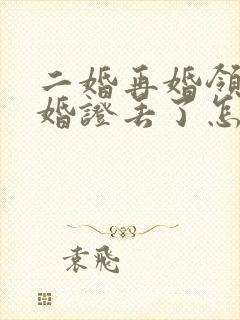 二婚再婚領
婚證丟了怎
袁飛